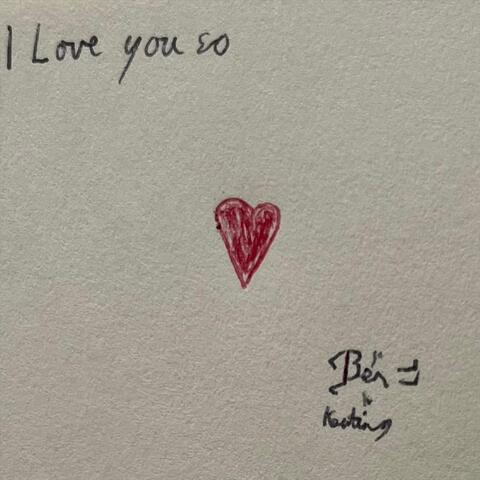 I Love you so
Ben